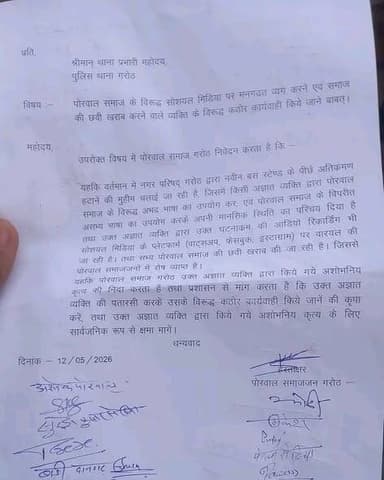 प्रति,
श्रीमान् थाना प्रभारी महोदय,
पुलिस थाना गरोठ
विषय :- पोरवाल समाज के विरूद्ध सोशयल मिडिया पर मनगढत व्यग करने एवं समाज
की छवी खराब करने वाले व्यक्ति के विरूद्ध कठोर कार्यवाही किये जाने बाबत्।
महोदय,
उपरोक्त विषय मे पोरवाल समाज गरोठ निवेदन करता है कि –
यहकि वर्तमान मे नगर परिषद् गरोठ द्वारा नवीन बस स्टेण्ड के पीछे अतिकमण
हटाने की मुहीम चलाई जा रही है, जिसमें किसी अज्ञात व्यक्ति द्वारा पोरवाल
समाज के विरूद्ध अभद्र भाषा का उपयोग कर, एवं पोरवाल समाज के विपरीत
असभ्य भाषा का उपयोग करके अपनी मानसिक स्थिति का परिचय दिया है
तथा उक्त अज्ञात व्यक्ति द्वारा उक्त घटनाकम की आडियो रिकार्डिंग भी
सोशयल मिडिया के प्लेटफार्म (वाटसअप, फेसबुक, इस्टाग्राम) पर वायरल की
जा रही है। तथा सभ्य पोरवाल समाज की छवी खराब की जा रही है। जिससे
पोरवाल समाजजनों मे रोष व्याप्त है।
यहकि पोरवाल समाज गरोठ उक्त अज्ञात व्यक्ति द्वारा किये गये अशोभनिय
कृत्य की निंदा करता है तथा प्रशासन से मांग करता है कि उक्त अज्ञात
व्यक्ति की पतारसी करके उसके विरूद्ध कठोर कार्यवाही किये जाने की कृपा
करें, तथा उक्त अज्ञात व्यक्ति द्वारा किये गये अशोभनिय कृत्य के लिए
सार्वजनिक रूप से क्षमा मांगे।
धन्यवाद
दिनांक – 12/05/2026
हस्ताक्षर
पोरवाल समाजजन गरोठ –